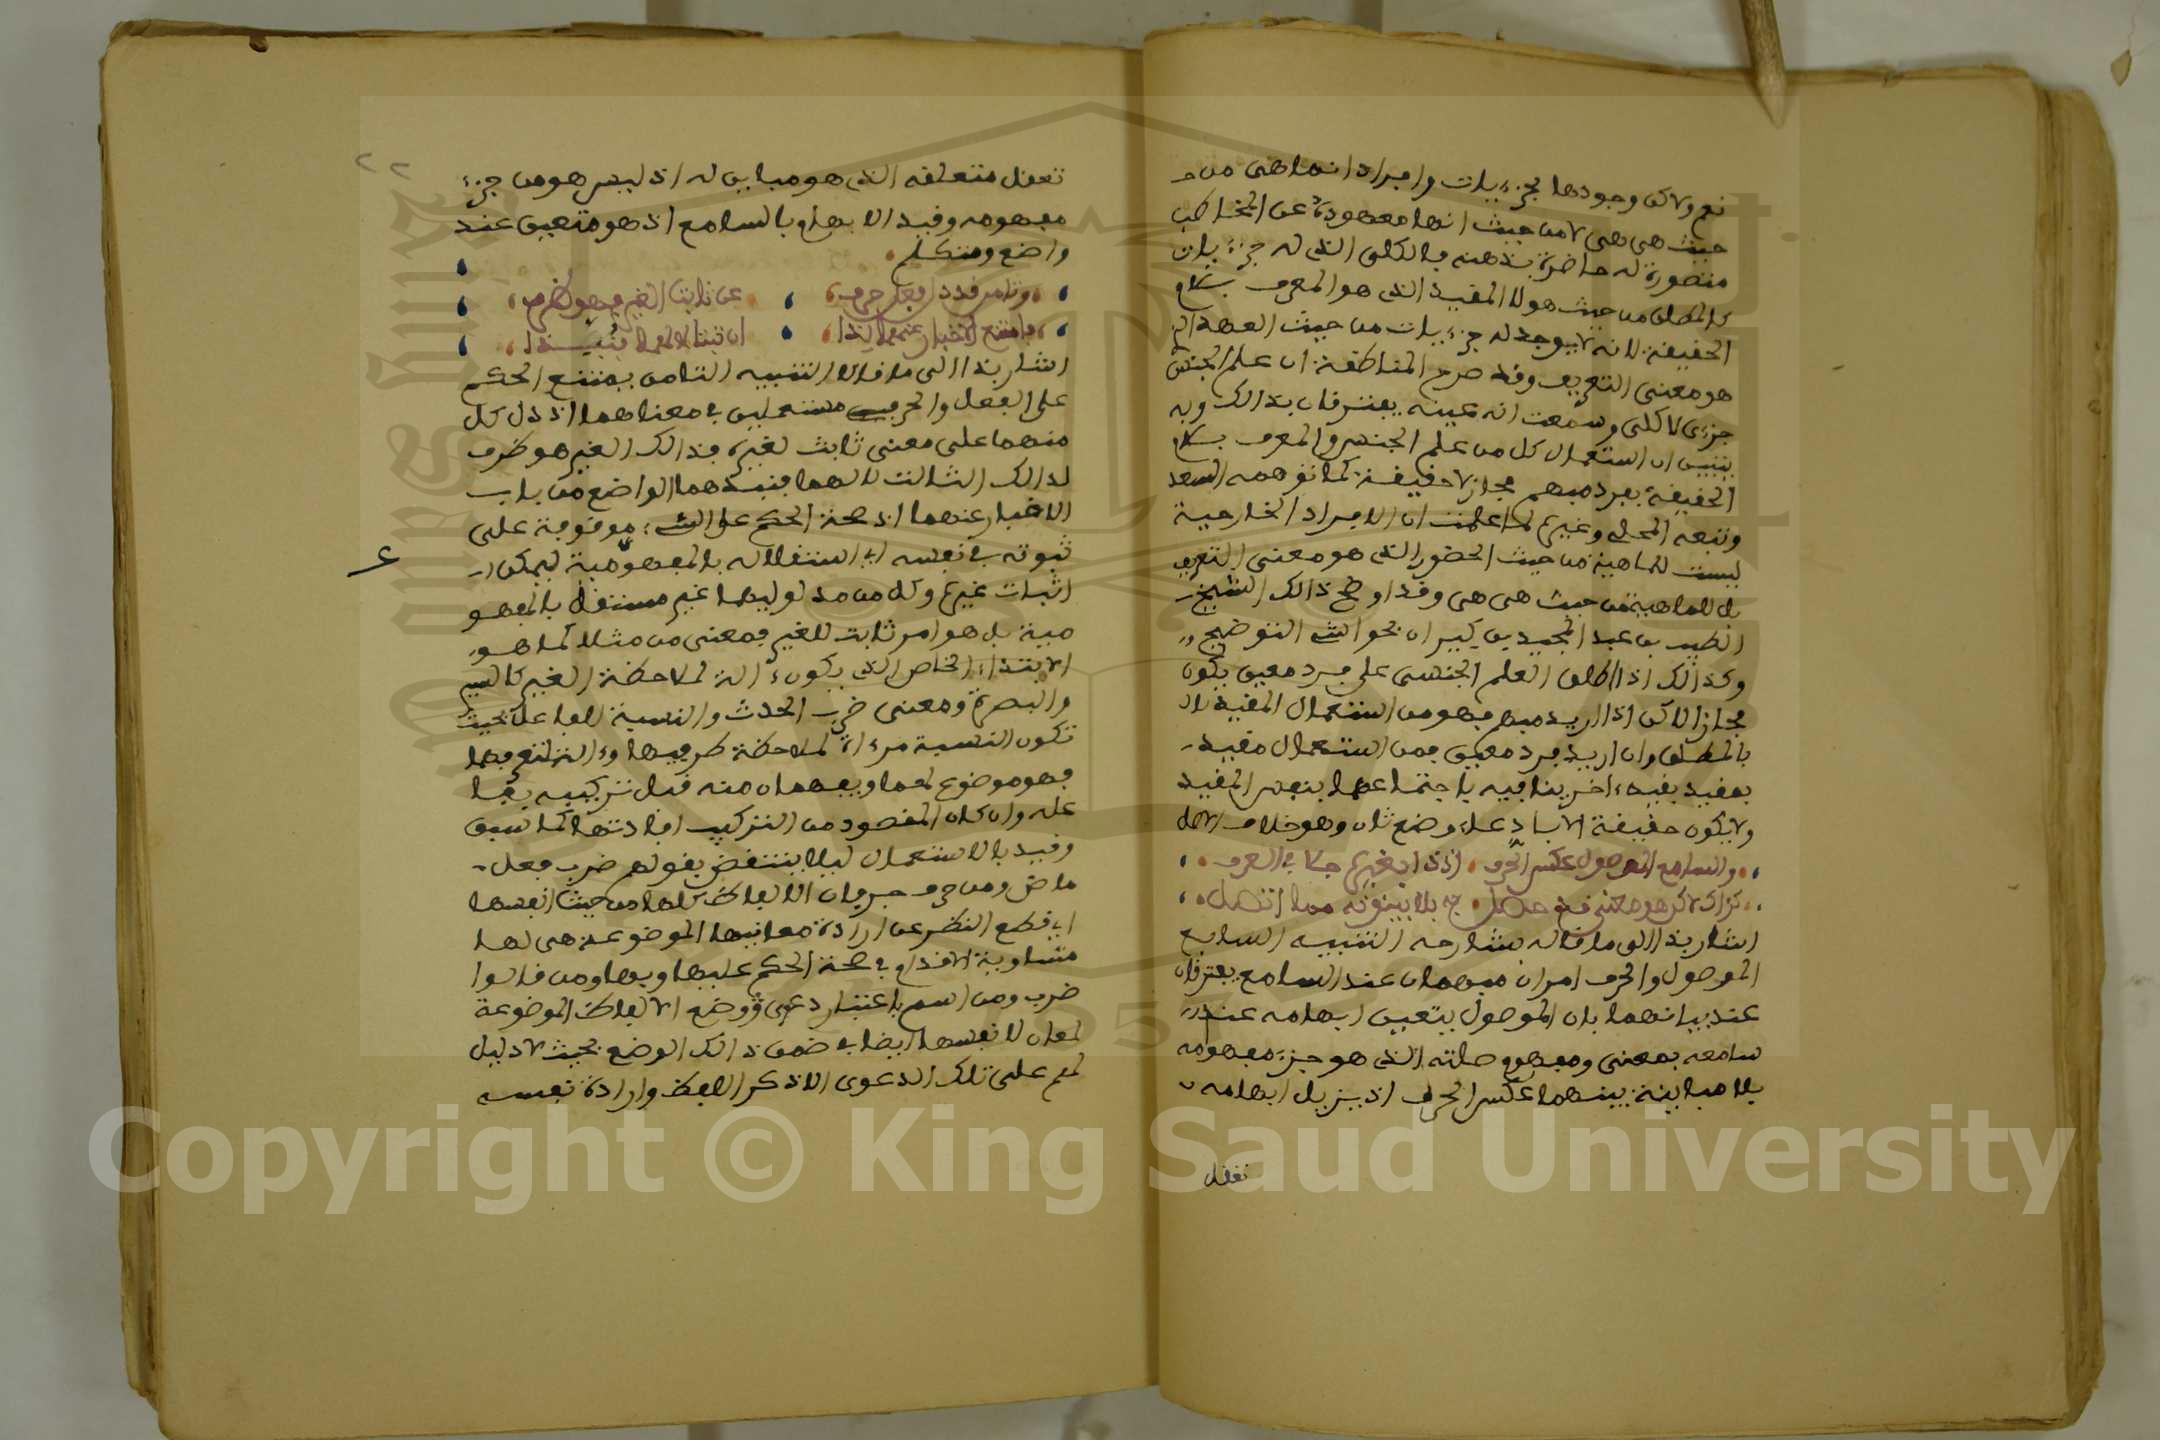 نعم ولاكن وجودها لجزءيات وافراد انما هى من
حيث هى هى لا من حيث انها معهودة عن المخاطب
متصورة له حاضرة بذهنه فالكلى الذى له جزءيات
كالمطلق من حيث هو لا المقيد الذى هو المعرف بلام
الحقيقة لانه لا يوجد له جزءيات من حيث العهد الذ
هو معنى التعريف وقد صرح المناطقة ان علم الجنس
جزءى لا كلى وسمعت انه عينه يفترقان بذالك وبه
يتبين ان استعمال كل من علم الجنس والمعرف بلام
الحقيقة بفرد مبهم مجاز لا حقيقة كما توهمه السعد
وتبعه المحلى وغيره لما علمت ان الافراد الخارجية
ليست للماهية من حيث الحضور الذى هو معنى التعريف
بل للماهية من حيث هى هى وقد اوضح ذالك الشيخ
الطيب بن عبد المجيد بن كيران بحواشى التوضيح
وكذالك اذا اطلق العلم الجنسى على فرد معين يكون
مجازا لاكن اذا اريد مبهم فهو من استعمال المقيد
بالمطلق وان اريد فرد معين فمن استعمال مقيد
بمقيد بقيد ءاخر ينافيه باجتماعهما بنفس المقيد
ولا يكون حقيقة الا بادعاء وضع ثان وهو خلاف الاصل
والسامع الموصول عكس الحرف اذ ذا بغيره جلا فى العرف
كذاك لاكن هو معنى قد حصل به بلا بينونة مما اتصل
اشار بذا الى ما قاله شارحه التنبيه السابع
الموصول والحرف امران مبهمان عند السامع يفترقان
عند بيانهما بان الموصول يتعين ابهامه عند
سامعه بمعنى ومفهوم صلته الذى هو جزء مفهومه
بلا مباينة بينهما عكس الحرف اذ يزيل ابهامه
تعقل
٢٢
تعقل متعلقه الذى هو مباين له اذ ليس هو من جزء
مفهومه وقيد الابهام بالسامع اذ هو متعين عند
واضع ومتكلم
وثامن قد دل فعل حرف عن ثابت الغير فهو ظرف
فامتنع الاخبار عنهما لذا ان تبتا
اشار بذا الى ما قال التنبيه الثامن يمتنع الحكم
على الفعل والحرف مستعملين فى معناهما اذ دل كل
منهما على معنى ثابت لغيره فذالك الغير هو ظرف
لذالك الثابت لا لهما فنبذهما الواضع من باب
الاخبار عنهما اذ صحة الحكم على الشىء موقوفة على
ثبوته فى نفسه اى استقلاله بالمفهومية ليمكن
اثبات غيره وكل من مدلوليهما غير مستقل بالمفهو
مية بل هو امر ثابت للغير فمعنى من مثلا كما هو
الابتداء الخاص الذى يكون ءالة لملاحظة الغير كالسير
والبصرة ومعنى ضرب الحدث والنسبة للفاعل بحيث
تكون النسبة مرءاة لملاحظة طرفيها وءالة لتعرفهما
فهو موضوع لهما ويفهمان منه قبل تركيبه بفا
عله وان كان المقصود من التركيب افادتها كما سبق
وقيد بالاستعمال ليلا ينتقض بقولهم ضرب فعل
ماض ومن حرف جر فان الالفاظ كلها من حيث انفسها
اى قطع النظر عن ارادة معانيها الموضوعة هى لها
متساوية الاقدام فى صحة الحكم عليها وبها ومن قالوا
ضرب ومن اسم باعتبار دعوى وضع الالفاظ الموضوعة
لمعان لانفسها ايضا فى ضمن ذالك الوضع بحيث لا دليل
لهم على تلك الدعوى الا ذكر اللفظ وارادة نفسه
Copyright © King Saud University